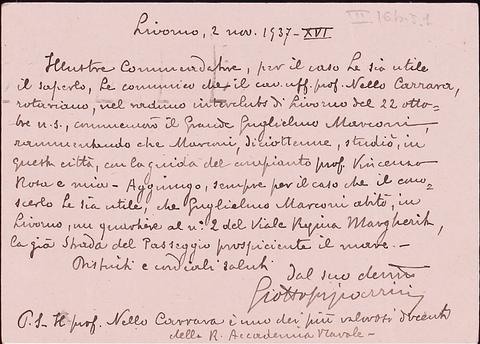 Livorno, 2 nov. 1937-XVI
Illustre Commendatore, per il caso Le sia utile
il saperlo, Le comunico che il cav. uff. prof. Nello Carrara,
rotariano, nel raduno interclubs di Livorno del 22 otto-
bre u.s., commemorò il Grande Guglielmo Marconi,
rammentando che Marconi, diciottenne, studiò, in
questa città, con la guida del compianto prof. Vincenzo
Rosa e mia - Aggiungo, sempre per il caso che il cono-
scerlo Le sia utile, che Guglielmo Marconi abitò, in
Livorno, un quartiere al n° 2 del Viale Regina Margherita,
la già Strada del Passeggio prospiciente il mare. -
Distinti e cordiali saluti
Dal suo devmo
Giotto
P.S- Il prof. Nello Carrara è uno dei più valorosi docenti
della R. Accademia Navale -